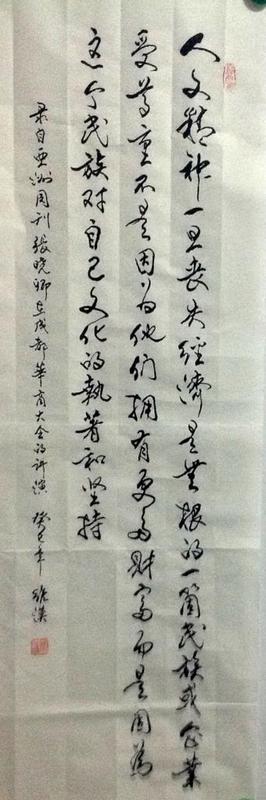 人文精神一旦丧失经濟是無根的一箇民族或企業
受尊重不是因为他们拥有更多财富而是因為
这个民族对自己文化的執著和坚持
录自亚洲周刊張晓卿在成都華商大会的讲演 癸巳年